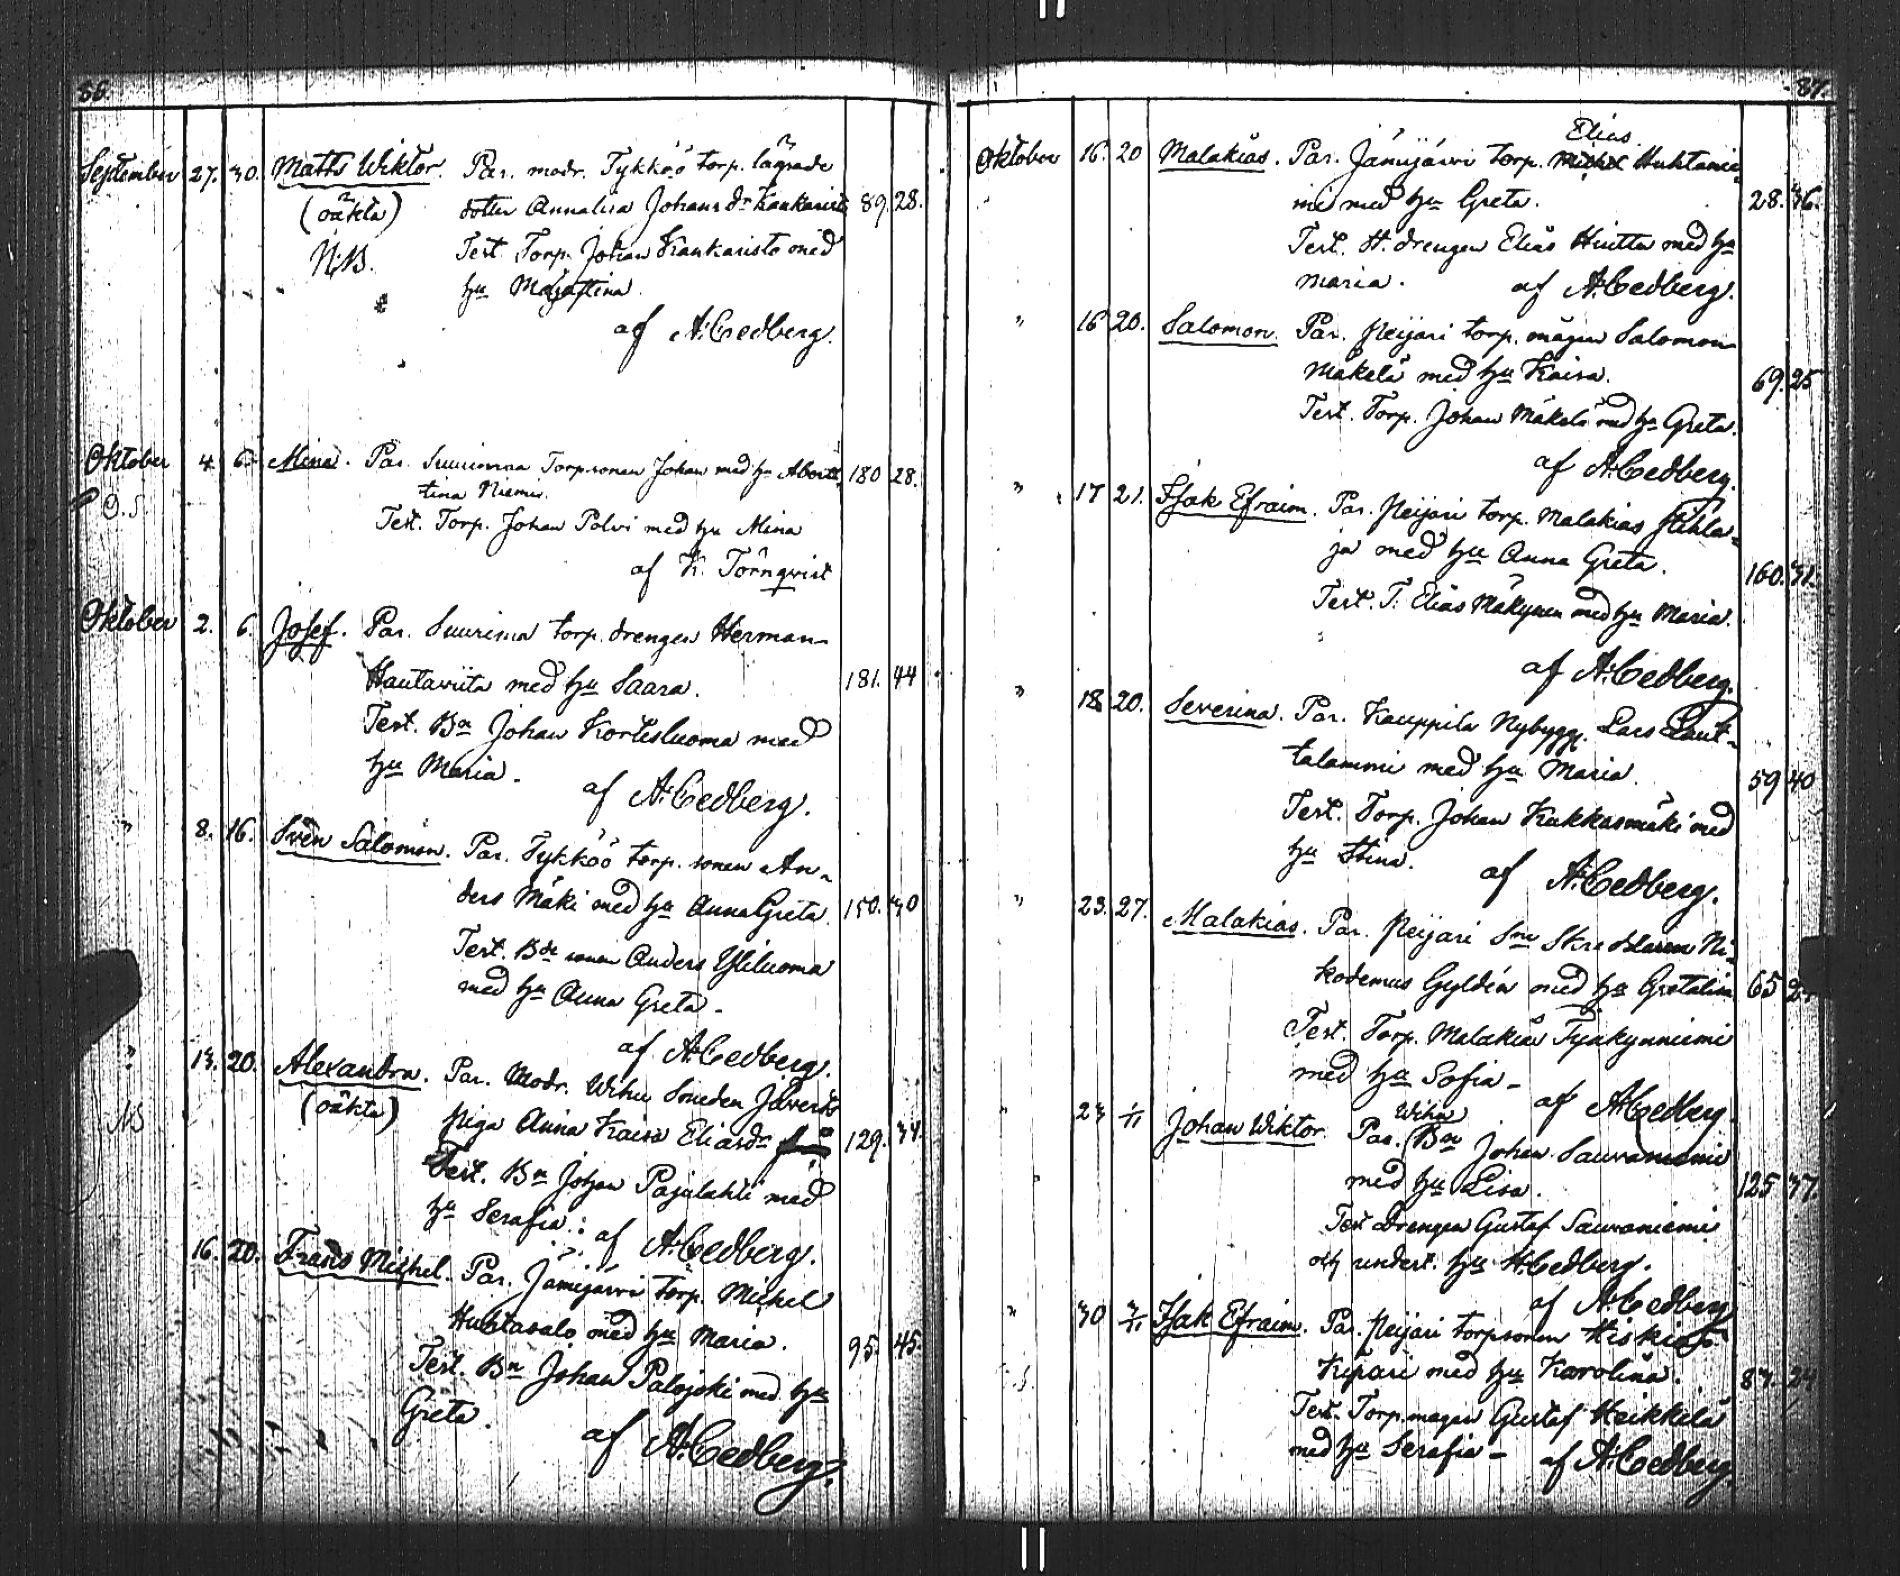 86.
September 27. 30. Matts Wiktor. Par. modr. Tykköö torp. lägrade
(oäkta) dotter Annalisa Johansdr Kankaristo 89. 28.
N.B. Test. Torp. Johan Kankaristo med
hu Majastina.
af A. Cedberg.
Oktober 4. 6. Mina. Par. Suurimaa Torpsonen Johan med hu 180 28.
tina Niemi.
D.S. Test. Torp. Johan Polvi med hu Mina
af K. Törnqvist
Oktober 2. 6. Josef. Par. Suurima torp. drengen Herman
Hautaviita med hu Saara. 181. 44
Test. Bn Johan Kortesluoma med
hu Maria.
af A. Cedberg.
" 8. 16. Sven Salomon. Par. Tykköö torp. sonen An-
ders Mäki med hu Anna Greta. 150. 30
Test. Bde sonen Anders Yliluoma
med hu Anna Greta.
af A. Cedberg.
" 13. 20. Alexandra. Par. Modr. Wihu
NB (oäkta) piga Anna Kaisa Eliasdr 129. 34.
Test. Bn Johan Pajulahti med
hu Serafia.
af A. Cedberg.
16. 20. Frans Michel. Par. Jämijärvi torp. Michel
Huhtasalo med hu Maria. 95. 45.
Test. Bn Johan Palojoki med hu
Greta.
af A. Cedberg.
87.
Elias
Oktober 16. 20 Malakias. Par. Jämijärvi torp. Michel Huhtanie-
mi med hu Greta. 28. 36.
Test. H. drengen Elias Hiitta med hu
Maria. af A. Cedberg.
" 16 20. Salomon. Par. Peijari torp. mågen Salomon
Mäkelä med hu Kaisa. 69. 25
Test. Torp. Johan Mäkelä med hu Greta.
af A. Cedberg.
" 17 21. Isak Efraim. Par. Peijari torp. Malakias Pihla-
ja med hu Anna Greta. 160. 31.
Test. T. Elias Mäkynen med hu Maria.
af A. Cedberg.
" 18 20. Severina. Par. Kauppila Nybygg. Lars Laut-
talammi med hu Maria. 59 40
Test. Torp. Johan Kukkasmäki med
hu Stina. af A. Cedberg.
" 23. 27. Malakias. Par. Peijari Sn Skreddaren Ni-
kodemus Gyldén med hu Gretalisa 65
Test. Torp. Malakias Tyrkynniemi
med hu Sofia
af A. Cedberg.
Wihu
" 23 1/11 Johan Wiktor. Par. Bn Johan Sauvaniemi
med hu Lisa. 125 37.
Test Drengen Gustaf Sauvaniemi
och undert. hu H. Cedberg.
af A. Cedberg
" 30 3/11 Isak Efraim. Par. Peijari torpsonen Hiskias
Kipari med hu Karolina. 87. 24
Test. Torp. mågen Gustaf Heikkilä
med hu Serafia af A. Cedberg.